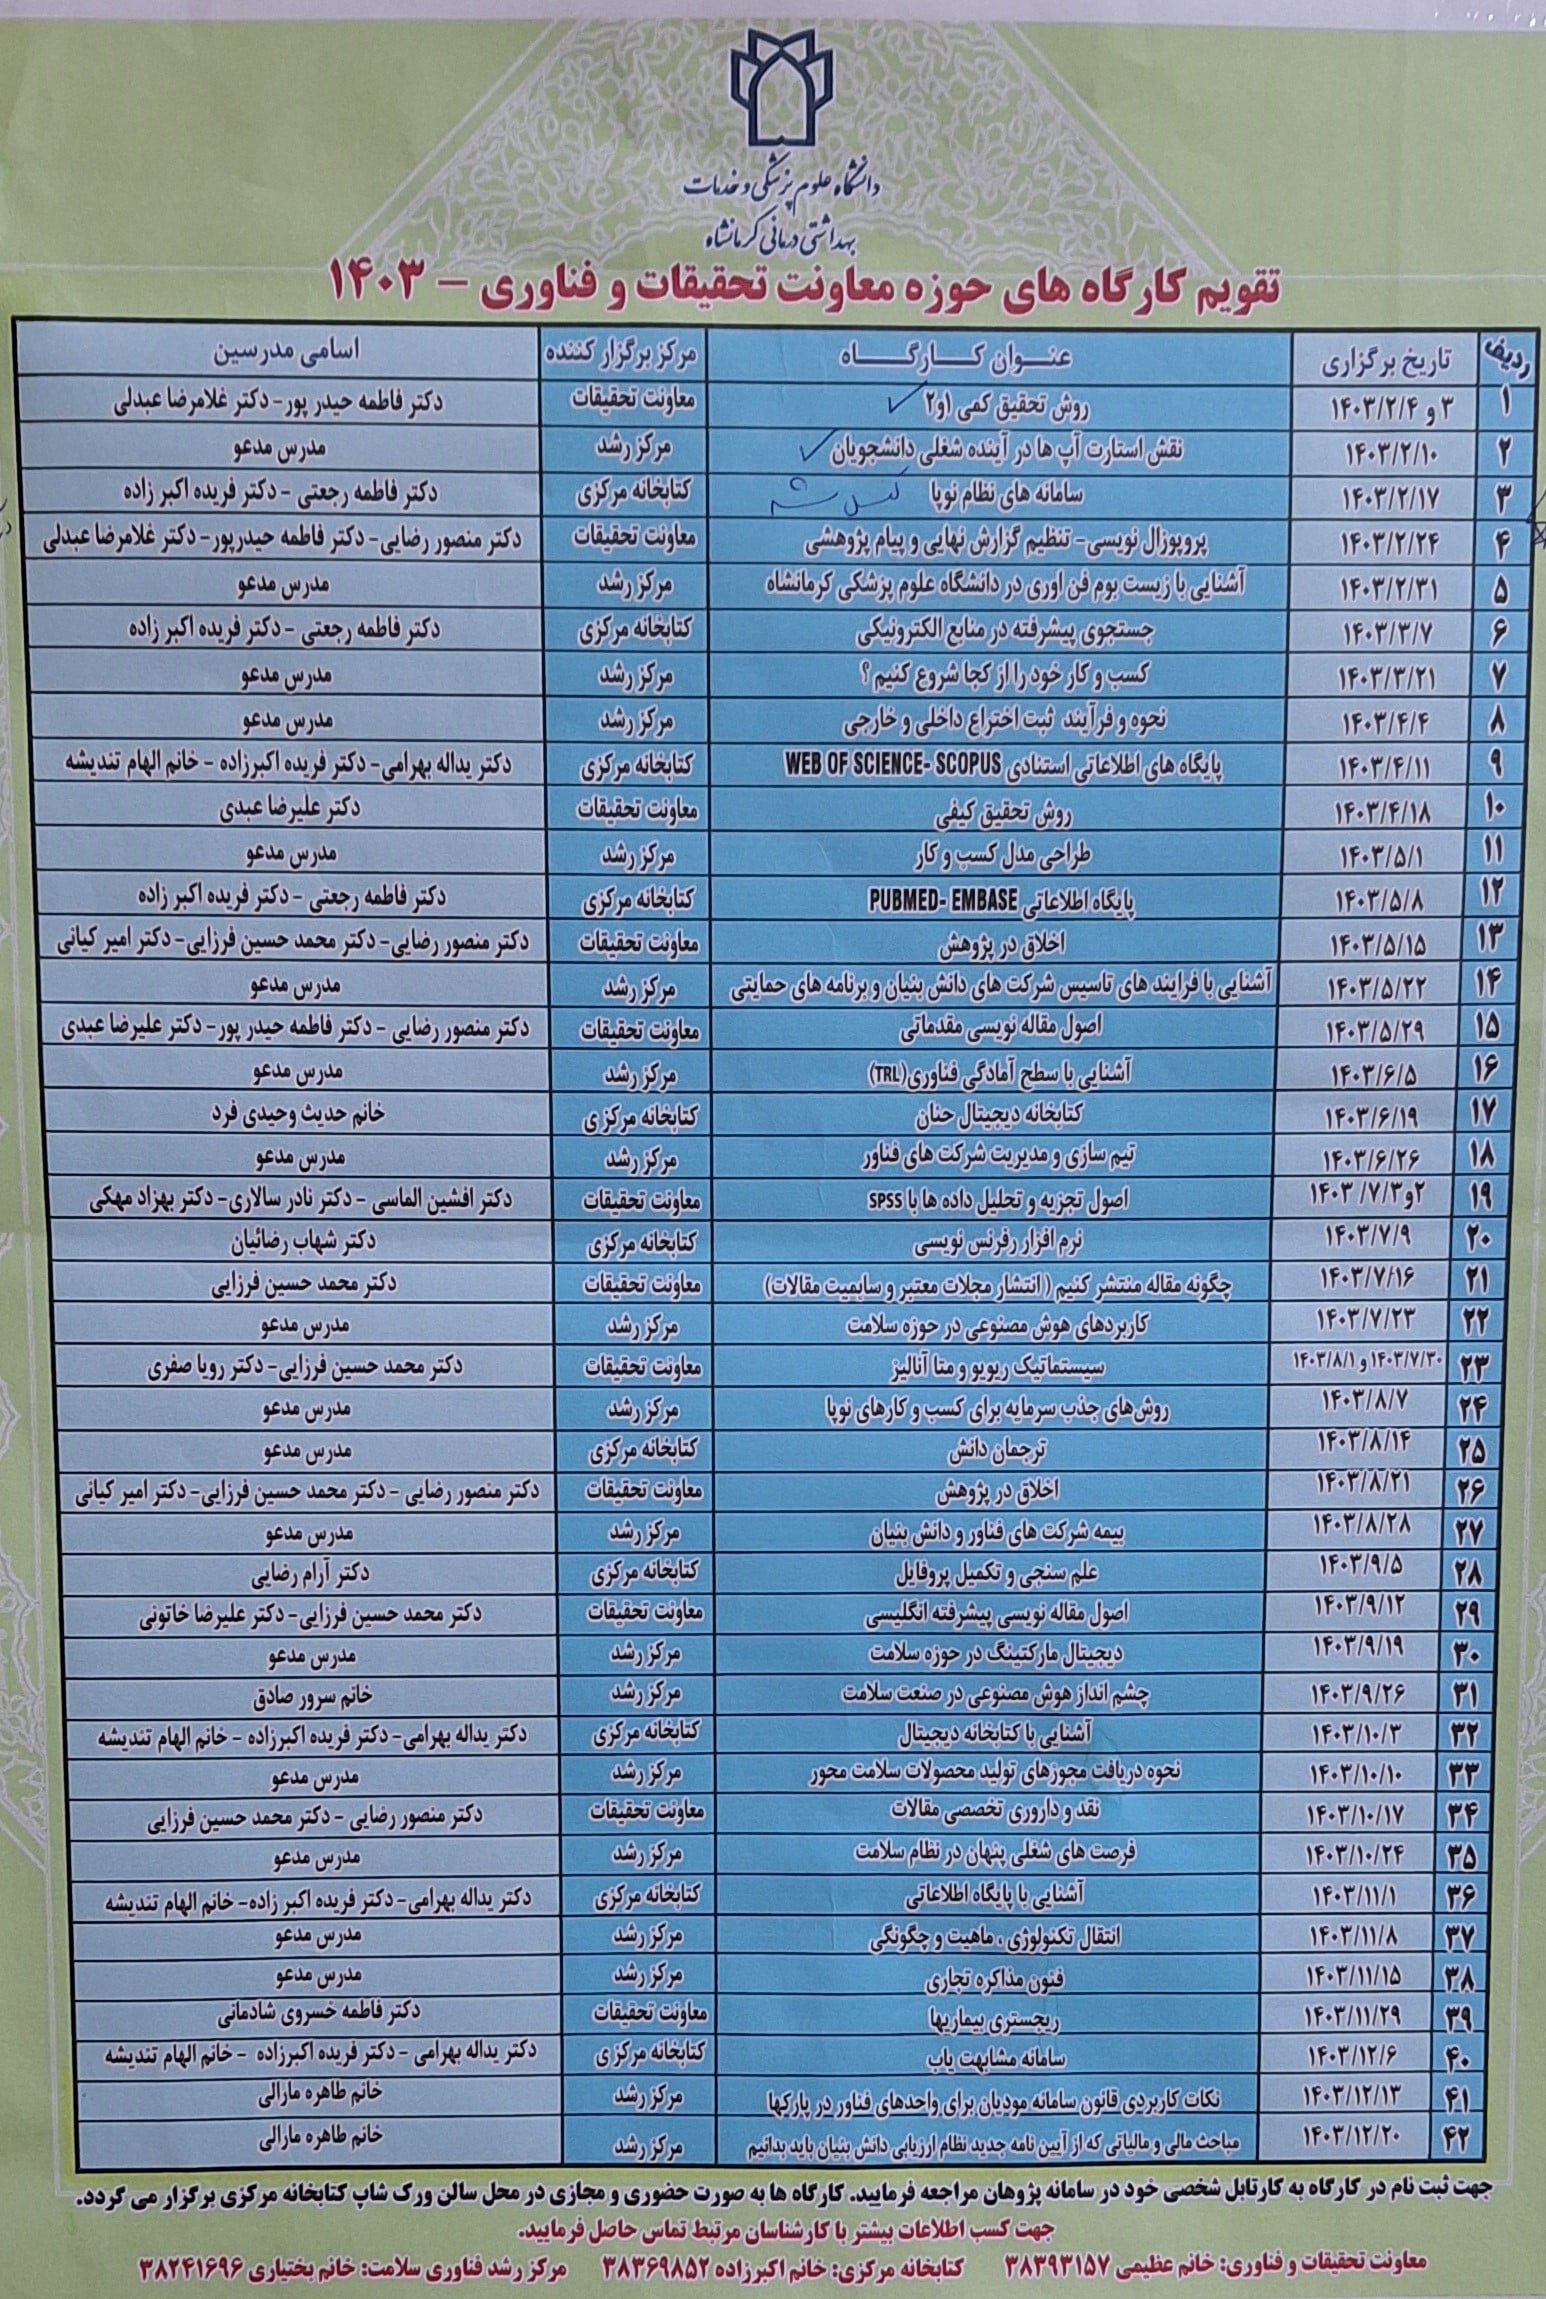 دانشگاه علوم پزشکی و خدمات
بهداشتی درمانی کرمانشاه
تقویم کارگاه های حوزه معاونت تحقیقات و فناوری – ۱۴۰۳
ردیف تاریخ برگزاری عنـوان کـارگـــاه مرکز برگزار کننده اسامی مدرسین
۱ ۳ و ۱۴۰۳/۲/۴ روش تحقیق کمی ۱و۲ معاونت تحقیقات دکتر فاطمه حیدر پور- دکتر غلامرضا عبدلی
۲ ۱۴۰۳/۲/۱۰ نقش استارت آپ ها در آینده شغلی دانشجویان مرکز رشد مدرس مدعو
۳ ۱۴۰۳/۲/۱۷ سامانه های نظام نوپا کتابخانه مرکزی دکتر فاطمه رجعتی - دکتر فریده اکبر زاده
۴ ۱۴۰۳/۲/۲۴ پروپوزال نویسی- تنظیم گزارش نهایی و پیام پژوهشی معاونت تحقیقات دکتر منصور رضایی- دکتر فاطمه حیدرپور- دکتر غلامرضا عبدلی
۵ ۱۴۰۳/۲/۳۱ آشنایی با زیست بوم فن اوری در دانشگاه علوم پزشکی کرمانشاه مرکز رشد مدرس مدعو
۶ ۱۴۰۳/۳/۷ جستجوی پیشرفته در منابع الکترونیکی کتابخانه مرکزی دکتر فاطمه رجعتی - دکتر فریده اکبر زاده
۷ ۱۴۰۳/۳/۲۱ کسب و کار خود را از کجا شروع کنیم ؟ مرکز رشد مدرس مدعو
۸ ۱۴۰۳/۴/۴ نحوه و فرآیند ثبت اختراع داخلی و خارجی مرکز رشد مدرس مدعو
۹ ۱۴۰۳/۴/۱۱ پایگاه های اطلاعاتی استنادی WEB OF SCIENCE- SCOPUS کتابخانه مرکزی دکتر یداله بهرامی- دکتر فریده اکبرزاده - خانم الهام تندیشه
۱۰ ۱۴۰۳/۴/۱۸ روش تحقیق کیفی معاونت تحقیقات دکتر علیرضا عبدی
۱۱ ۱۴۰۳/۵/۱ طراحی مدل کسب و کار مرکز رشد مدرس مدعو
۱۲ ۱۴۰۳/۵/۸ پایگاه اطلاعاتی PUBMED- EMBASE کتابخانه مرکزی دکتر فاطمه رجعتی - دکتر فریده اکبر زاده
۱۳ ۱۴۰۳/۵/۱۵ اخلاق در پژوهش معاونت تحقیقات دکتر منصور رضایی- دکتر محمد حسین فرزایی- دکتر امیر کیانی
۱۴ ۱۴۰۳/۵/۲۲ آشنایی با فرایند های تاسیس شرکت های دانش بنیان و برنامه های حمایتی مرکز رشد مدرس مدعو
۱۵ ۱۴۰۳/۵/۲۹ اصول مقاله نویسی مقدماتی معاونت تحقیقات دکتر منصور رضایی - دکتر فاطمه حیدر پور- دکتر علیرضا عبدی
۱۶ ۱۴۰۳/۶/۵ آشنایی با سطح آمادگی فناوری(TRL) مرکز رشد مدرس مدعو
۱۷ ۱۴۰۳/۶/۱۹ کتابخانه دیجیتال حنان کتابخانه مرکزی خانم حدیث وحیدی فرد
۱۸ ۱۴۰۳/۶/۲۶ تیم سازی و مدیریت شرکت های فناور مرکز رشد مدرس مدعو
۱۹ ۲و۱۴۰۳/۷/۳ اصول تجزیه و تحلیل داده ها با SPSS معاونت تحقیقات دکتر افشین الماسی - دکتر نادر سالاری- دکتر بهزاد مهکی
۲۰ ۱۴۰۳/۷/۹ نرم افزار رفرنس نویسی کتابخانه مرکزی دکتر شهاب رضائیان
۲۱ ۱۴۰۳/۷/۱۶ چگونه مقاله منتشر کنیم ( انتشار مجلات معتبر و سابمیت مقالات) معاونت تحقیقات دکتر محمد حسین فرزایی
۲۲ ۱۴۰۳/۷/۲۳ کاربردهای هوش مصنوعی در حوزه سلامت مرکز رشد مدرس مدعو
۲۳ ۱۴۰۳/۷/۳۰ و ۱۴۰۳/۸/۱ سیستماتیک ریویو و متا آنالیز معاونت تحقیقات دکتر محمد حسین فرزایی- دکتر رویا صفری
۲۴ ۱۴۰۳/۸/۷ روش‌های جذب سرمایه برای کسب و کارهای نوپا مرکز رشد مدرس مدعو
۲۵ ۱۴۰۳/۸/۱۴ ترجمان دانش کتابخانه مرکزی مدرس مدعو
۲۶ ۱۴۰۳/۸/۲۱ اخلاق در پژوهش معاونت تحقیقات دکتر منصور رضایی - دکتر محمد حسین فرزایی- دکتر امیر کیانی
۲۷ ۱۴۰۳/۸/۲۸ بیمه شرکت های فناور و دانش بنیان مرکز رشد مدرس مدعو
۲۸ ۱۴۰۳/۹/۵ علم سنجی و تکمیل پروفایل کتابخانه مرکزی دکتر آرام رضایی
۲۹ ۱۴۰۳/۹/۱۲ اصول مقاله نویسی پیشرفته انگلیسی معاونت تحقیقات دکتر محمد حسین فرزایی- دکتر علیرضا خاتونی
۳۰ ۱۴۰۳/۹/۱۹ دیجیتال مارکتینگ در حوزه سلامت مرکز رشد مدرس مدعو
۳۱ ۱۴۰۳/۹/۲۶ چشم انداز هوش مصنوعی در صنعت سلامت مرکز رشد خانم سرور صادق
۳۲ ۱۴۰۳/۱۰/۳ آشنایی با کتابخانه دیجیتال کتابخانه مرکزی دکتر یداله بهرامی- دکتر فریده اکبرزاده - خانم الهام تندیشه
۳۳ ۱۴۰۳/۱۰/۱۰ نحوه دریافت مجوزهای تولید محصولات سلامت محور مرکز رشد مدرس مدعو
۳۴ ۱۴۰۳/۱۰/۱۷ نقد و داروری تخصصی مقالات معاونت تحقیقات دکتر منصور رضایی - دکتر محمد حسین فرزایی
۳۵ ۱۴۰۳/۱۰/۲۴ فرصت های شغلی پنهان در نظام سلامت مرکز رشد مدرس مدعو
۳۶ ۱۴۰۳/۱۱/۱ آشنایی با پایگاه اطلاعاتی کتابخانه مرکزی دکتر یداله بهرامی- دکتر فریده اکبر زاده- خانم الهام تندیشه
۳۷ ۱۴۰۳/۱۱/۸ انتقال تکنولوژی ، ماهیت و چگونگی مرکز رشد مدرس مدعو
۳۸ ۱۴۰۳/۱۱/۱۵ فنون مذاکره تجاری مرکز رشد مدرس مدعو
۳۹ ۱۴۰۳/۱۱/۲۹ ریجستری بیماریها معاونت تحقیقات دکتر فاطمه خسروی شادمانی
۴۰ ۱۴۰۳/۱۲/۶ سامانه مشابهت یاب کتابخانه مرکزی دکتر یداله بهرامی - دکتر فریده اکبرزاده - خانم الهام تندیشه
۴۱ ۱۴۰۳/۱۲/۱۳ نکات کاربردی قانون سامانه مودیان برای واحدهای فناور در پارکها مرکز رشد خانم طاهره مازالی
۴۲ ۱۴۰۳/۱۲/۲۰ مباحث مالی و مالیاتی که از آیین نامه جدید نظام ارزیابی دانش بنیان باید بدانیم مرکز رشد خانم طاهره مازالی
جهت ثبت نام در کارگاه به کارتابل شخصی خود در سامانه پژوهان مراجعه فرمایید. کارگاه ها به صورت حضوری و مجازی در محل سالن ورک شاپ کتابخانه مرکزی برگزار می گردد.
جهت کسب اطلاعات بیشتر با کارشناسان مرتبط تماس حاصل فرمایید.
معاونت تحقیقات و فناوری: خانم عظیمی ۳۸۳۹۳۱۵۷ کتابخانه مرکزی: خانم اکبرزاده ۳۸۳۶۹۸۵۲ مرکز رشد فناوری سلامت: خانم بختیاری ۳۸۲۴۱۶۹۶